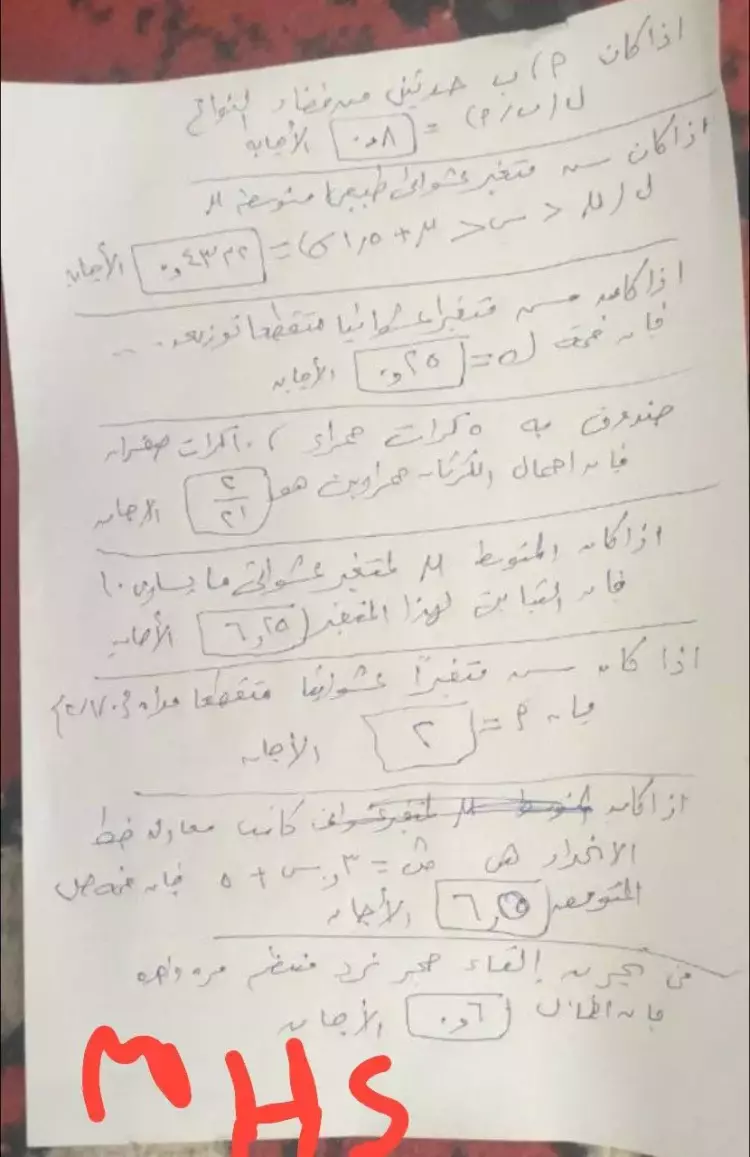 اذا كان P، ب حدثين من فضاء النواتج
ل(ب/P) = ٠,٨ الأجابه
اذا كان س متغير عشوائى طبيعيا متوسطه μ
ل(μ < س < μ + ١,٥ σ) = ٠,٤٣٣٢ الأجابه
اذا كان س متغيرا عشوائيا متقطعا توزيعه ...
فإن قيمة ك = ٠,٢٥ الأجابه
صندوق به ٥ كرات حمراء، ١٠ كرات صفراء
فإن احتمال الكرتان حمراوين هو ٢/٢١ الاجابه
اذا كان المتوسط μ لمتغير عشوائي ما يساوى ١٠
فإن التباين لهذا المتغير ٦,٢٥ الأجابه
اذا كان س متغيرًا عشوائيا متقطعا مداه
فإن P = ٢ الأجابه
اذا كان كانت معادلة خط
الانحدار هى ص = ٣,٠ س + ٥ فإن قيمة ص
المتوقعه ٦,٥ الأجابه
فى تجربة إلقاء حجر نرد منتظم مره واحده
فإن ٠,٦ الأجابه
MHS